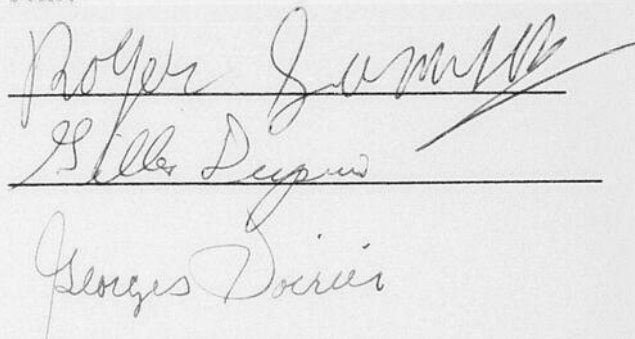 Roger
Gilles Dupuis
Georges Poirier